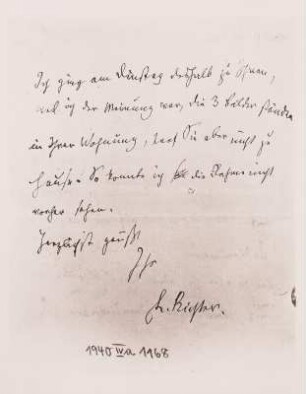 Ich ging am Dienstag deshalb zu Ihnen,
weil ich der Meinung war, die 3 Bilder ständen
in Ihrer Wohnung, traf Sie aber nicht zu
Hause. So konnte ich die Rahmen nicht
vorher sehen.
Herzlichst grüßt
Ihr
H. Richter.
1940 IVa 1168